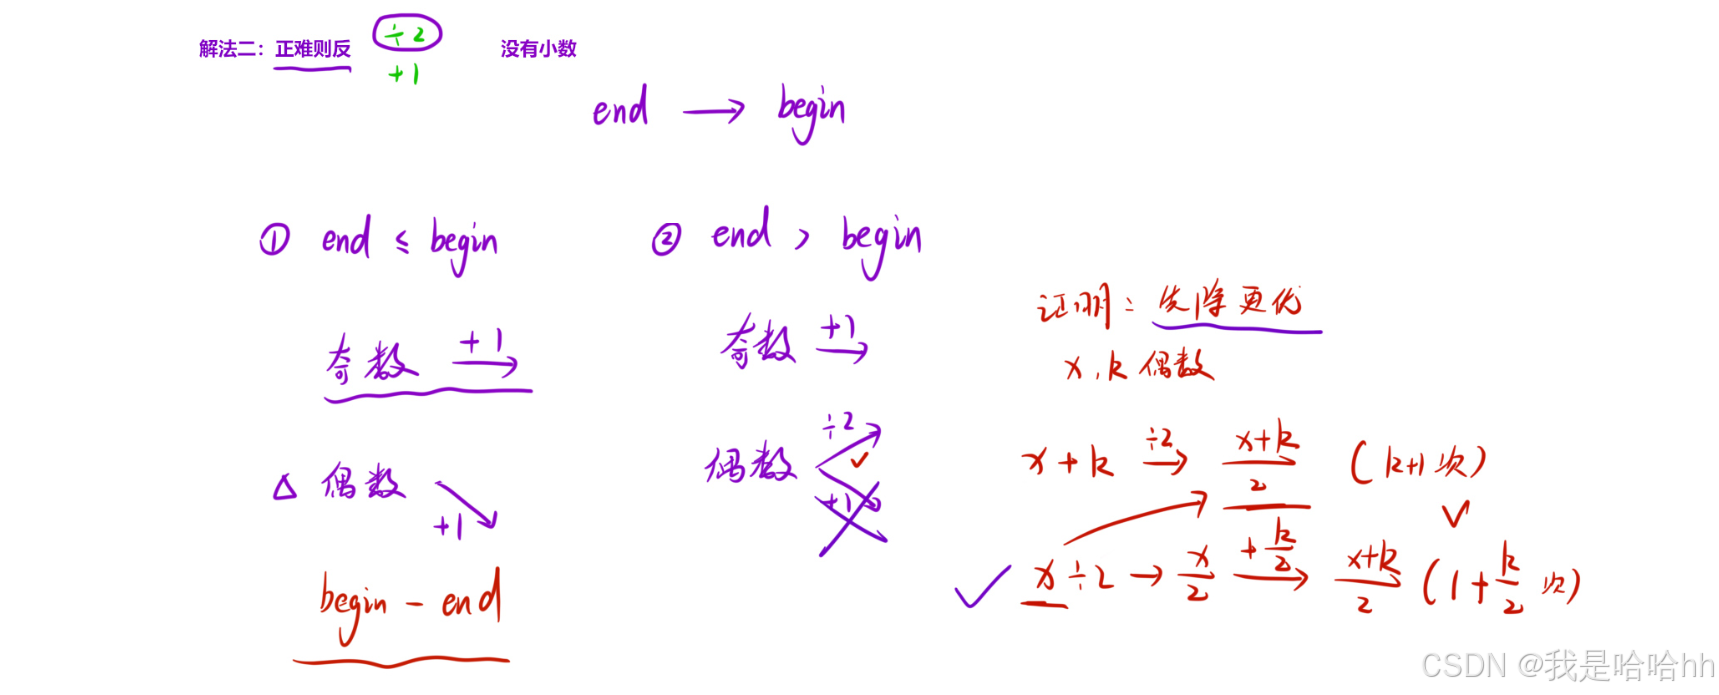 解法二：正难则反 ÷2 没有小数
+1
end → begin
① end ≤ begin
奇数 +1
△ 偶数 +1
begin - end
② end > begin
奇数 +1
偶数 ÷2 ✓
+1
证明：先除更优
x，k 偶数
x+k ÷2 → (x+k)/2 (k+1次)
✓
✓ x÷2 → x/2 +k/2 → (x+k)/2 (1+k/2次)
CSDN @我是哈哈hh